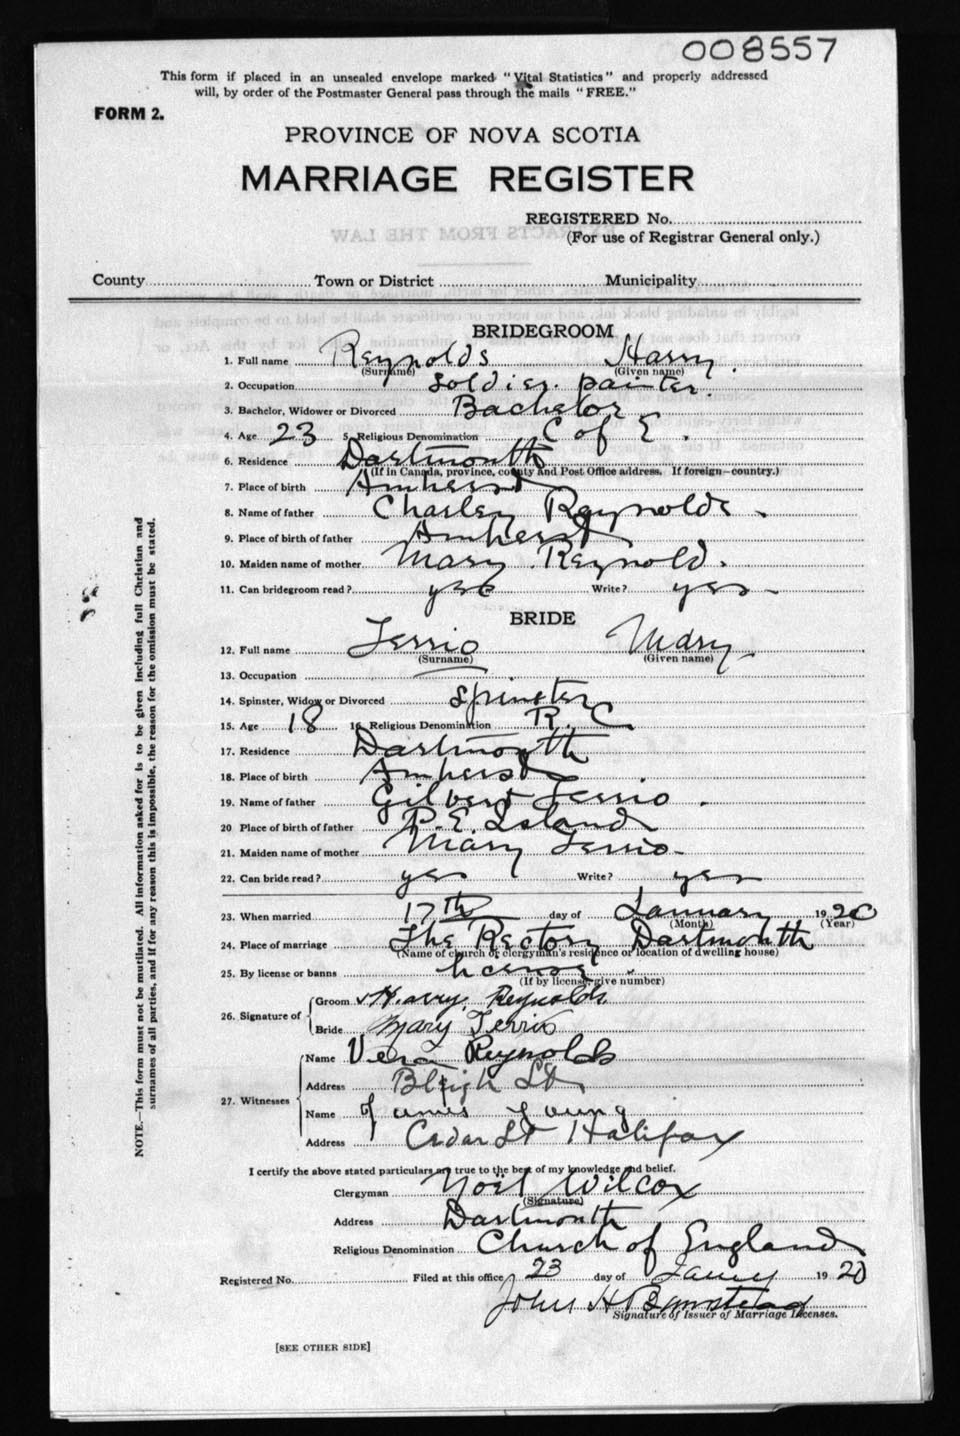 008557
This form if placed in an unsealed envelope marked "Vital Statistics" and properly addressed
will, by order of the Postmaster General pass through the mails "FREE."
FORM 2.
PROVINCE OF NOVA SCOTIA
MARRIAGE REGISTER
REGISTERED No.
(For use of Registrar General only.)
County Town or District Municipality
BRIDEGROOM
1. Full name Reynolds Harry.
(Surname) (Given name)
2. Occupation Soldier. painter.
3. Bachelor, Widower or Divorced Bachelor
4. Age 23 5. Religious Denomination C of E.
6. Residence Dartmouth
(If in Canada, province, county and Post Office address. If foreign—country.)
7. Place of birth Amherst
8. Name of father Charley Reynolds.
9. Place of birth of father Amherst
10. Maiden name of mother Mary Reynold.
11. Can bridegroom read? yes Write? yes
BRIDE
12. Full name Terrio Mary
(Surname) (Given name)
13. Occupation
14. Spinster, Widow or Divorced Spinster
15. Age 18 16. Religious Denomination R. C
17. Residence Dartmouth
18. Place of birth Amherst
19. Name of father Gilbert Terrio.
20 Place of birth of father P. E. Island
21. Maiden name of mother Mary Terrio
22. Can bride read? yes Write? yes
23. When married 17th day of January 1920
(Month) (Year)
24. Place of marriage The Rectory Dartmouth
(Name of church or clergyman's residence or location of dwelling house)
25. By license or banns license.
(If by license, give number)
26. Signature of
Groom Harry Reynolds
Bride Mary Terrio
27. Witnesses
Name Vera Reynolds
Address Bleigh St
Name James Young
Address Cedar St Halifax
I certify the above stated particulars are true to the best of my knowledge and belief.
Clergyman Noel Wilcox
(Signature)
Address Dartmouth
Religious Denomination Church of England
Registered No. Filed at this office 23 day of Jany 1920
John H
Signature of Issuer of Marriage Licenses.
[SEE OTHER SIDE]
NOTE.—This form must not be mutilated. All information asked for is to be given including full Christian and
surnames of all parties, and if for any reason this is impossible, the reason for the omission must be stated.